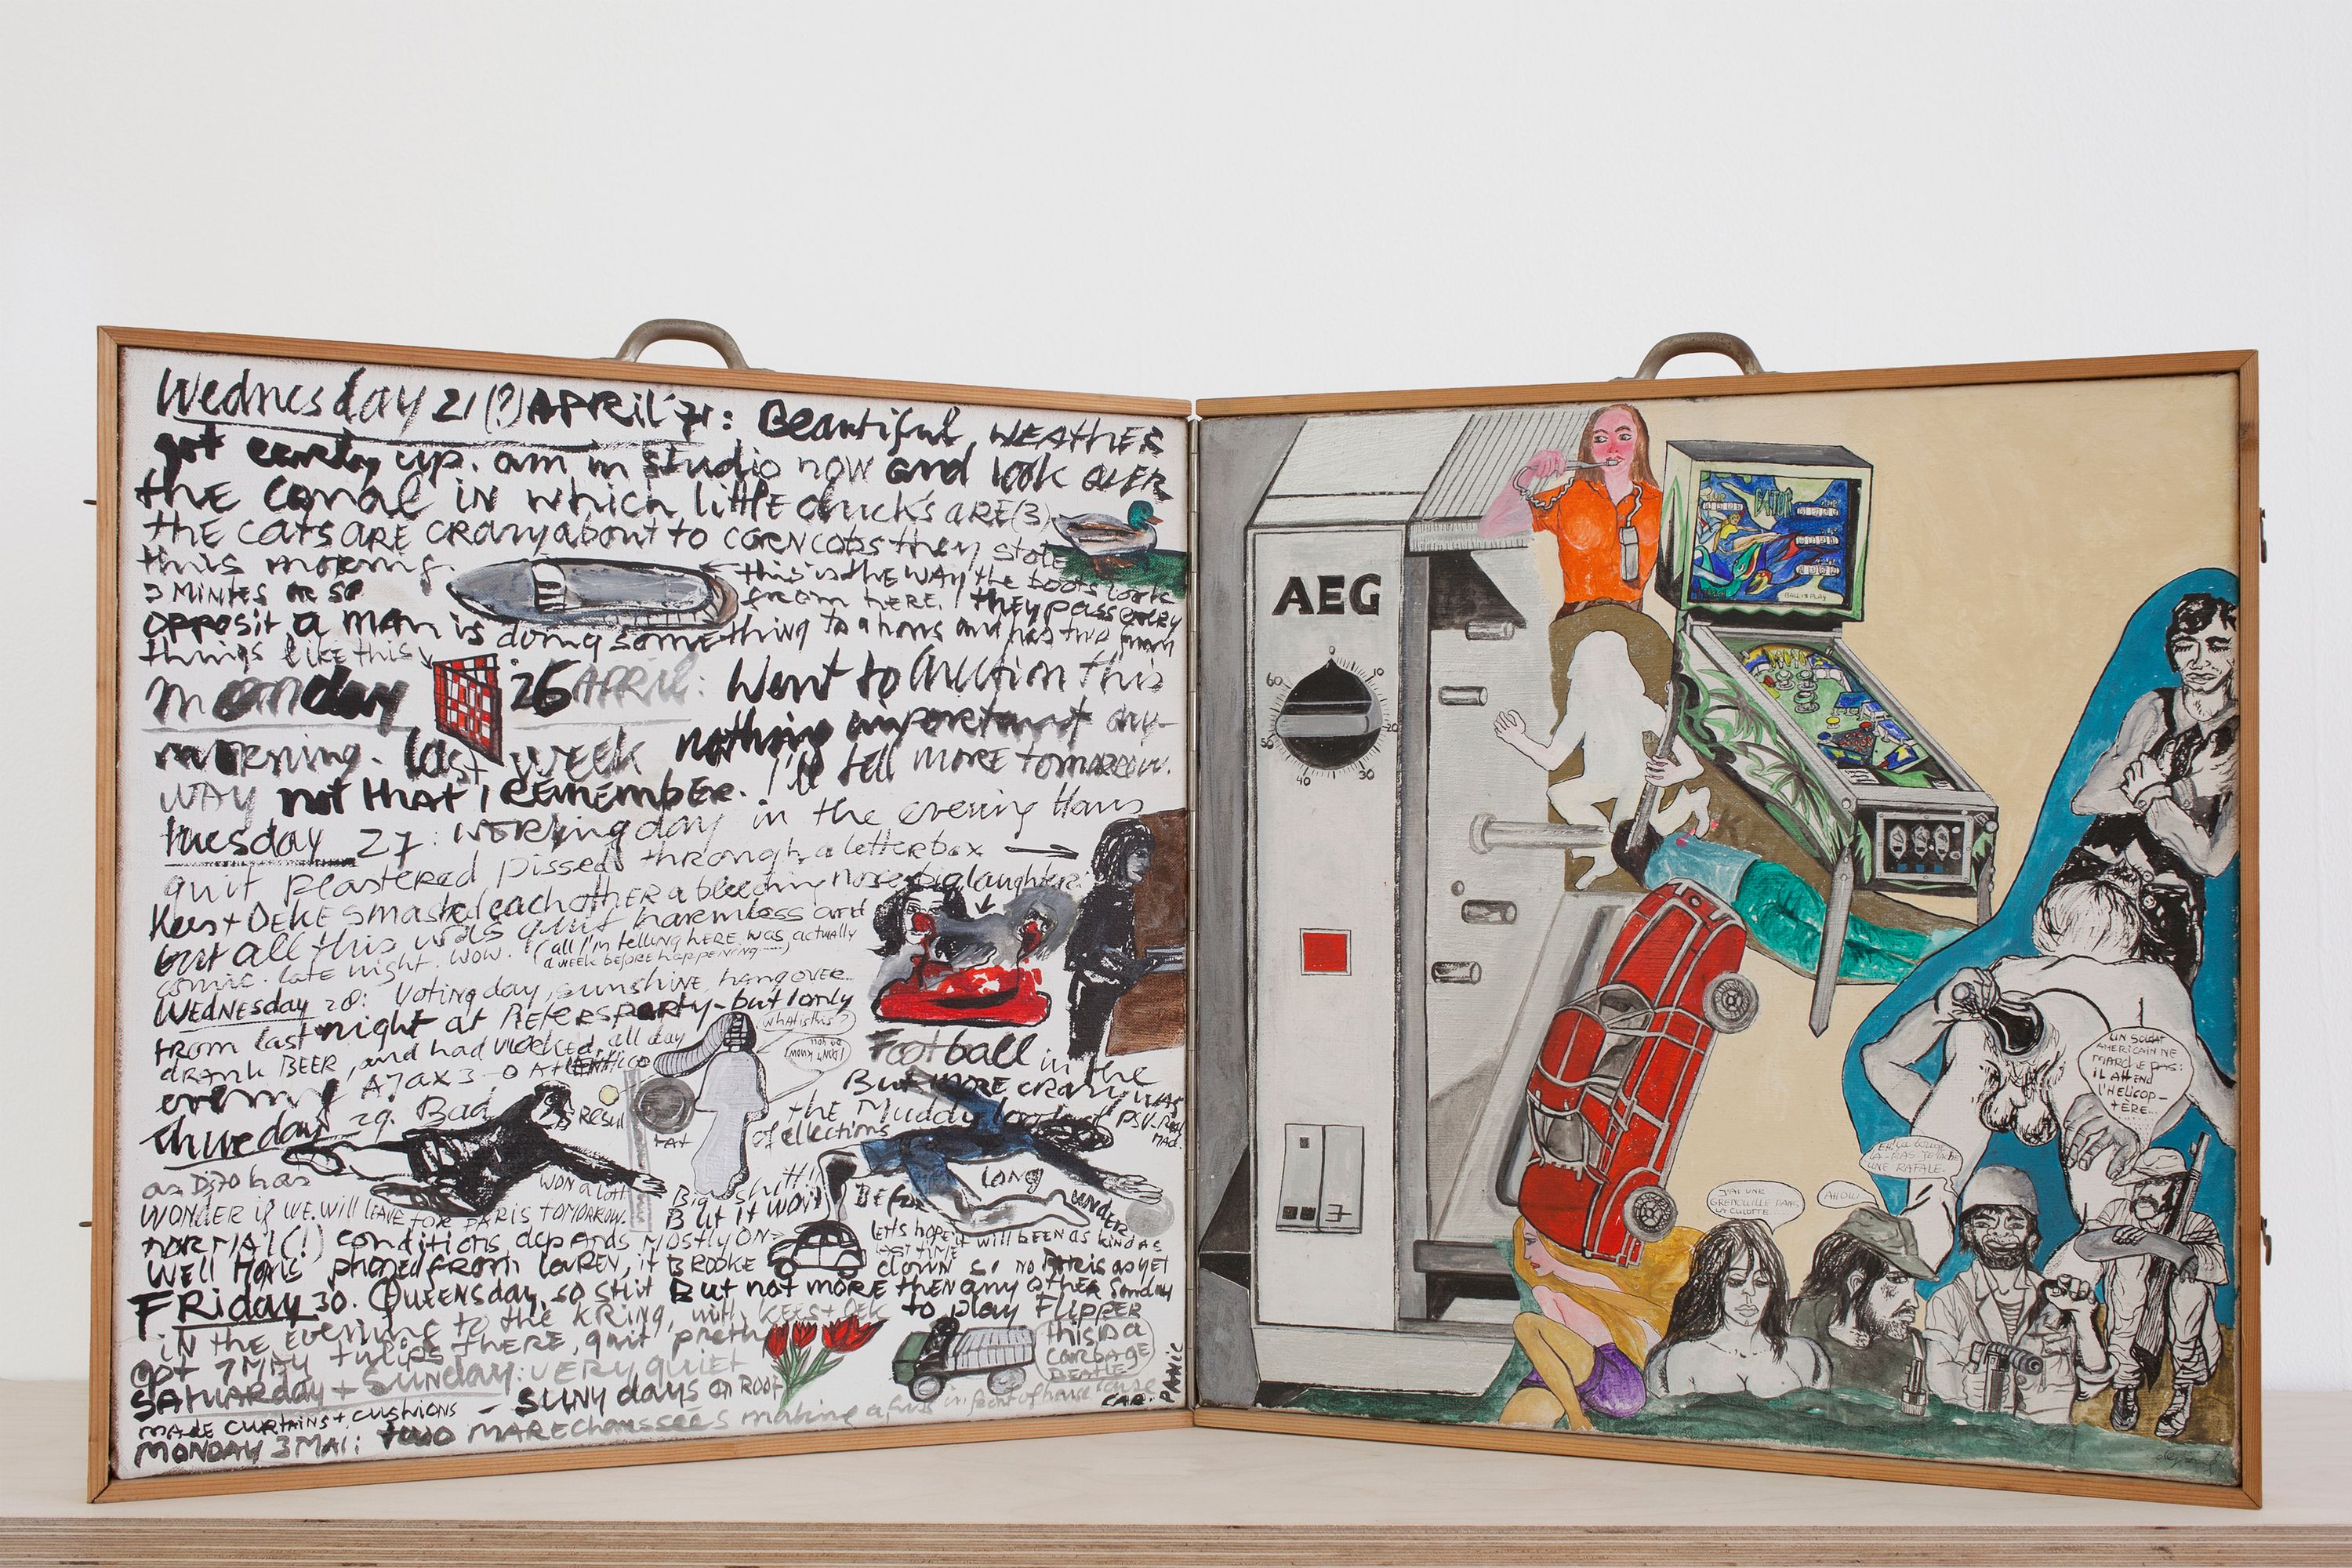 Wednesday 21(?) APRIL '71: Beautiful WEATHER
got early up. am in studio now and look OVER
the canal in which little duck's ARE (3)
the CATS ARE crazy about to CORNCOBS they stole
this morning.
this is the WAY the boats look
from HERE. they pass every
2 MINTES OR SO
opposit a man is doing something to a house and has two
things like this
monday 26 APRIL: Went to Auction this
morning. last week nothing importantnt day-
WAY not that I REMEMBER. I'll tell MORE TOMORROW.
tuesday 27: WORKing day in the evening Hans
quit plastered pissed through a letterbox
Kees + DEKE smashed each other a bleeding nose big laughter
but all this was quit harmless and
comic. late night. wow. (all I'm telling HERE was actually
a week before happening)
WEDNESday 28: Voting day, sunshine, hangover
from last night at Pieter's party - but I only
drank BEER, and had worked all day
What is this?
I DON'T KNOW
Football in the
evening AJAX 3-0 Atletico
But more crazy was
Thursday 29. Bad
RESUL
the Muddy
of ellections
PSV-Real
MAD.
WON A LOTT
LONG
Big shitt!!
WONDER if WE will LEAVE FOR PARIS TOMORROW.
But it WON'
UNDER
NORMAL(!) conditions depends mostly on
let's hope it will been as kind as
last time
Well Hans phoned from LAREN, it BROOKE down so no PARIS as yet
FRiday 30. Queensday, so shit But not more then any other Sunday
in the evening to the KRING, with KEES + DEK to play Flipper
got 7 MAY tulips THERE, quit pretty
this is a
GARBAGE
BEATLE
CAR.
PANIC
SATUARday + Sunday: VERY quiet
- SUNY days on ROOF
MADE CURTAINS + CUSHIONS
MONDAY 3 MAI: two MARECHAUSSEES making a fuss in front of house
AEG
0
10
20
30
40
50
60
BALL IN PLAY
UN SOLDAT
AMERICAIN NE
MARCHE PAS:
IL ATTEND
L'HELICOP-
TÈRE...
UNE RAFALE.
J'AI UNE
GRENOUILLE DANS
LA CULOTTE...